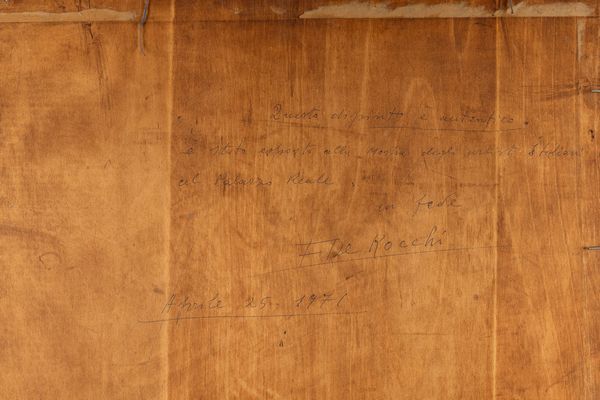 Questo dipinto è autentico.
è stato esposto alla Mostra degli artisti Italiani
al Palazzo Reale.
in fede
F. De Rocchi
Aprile 25. 1971